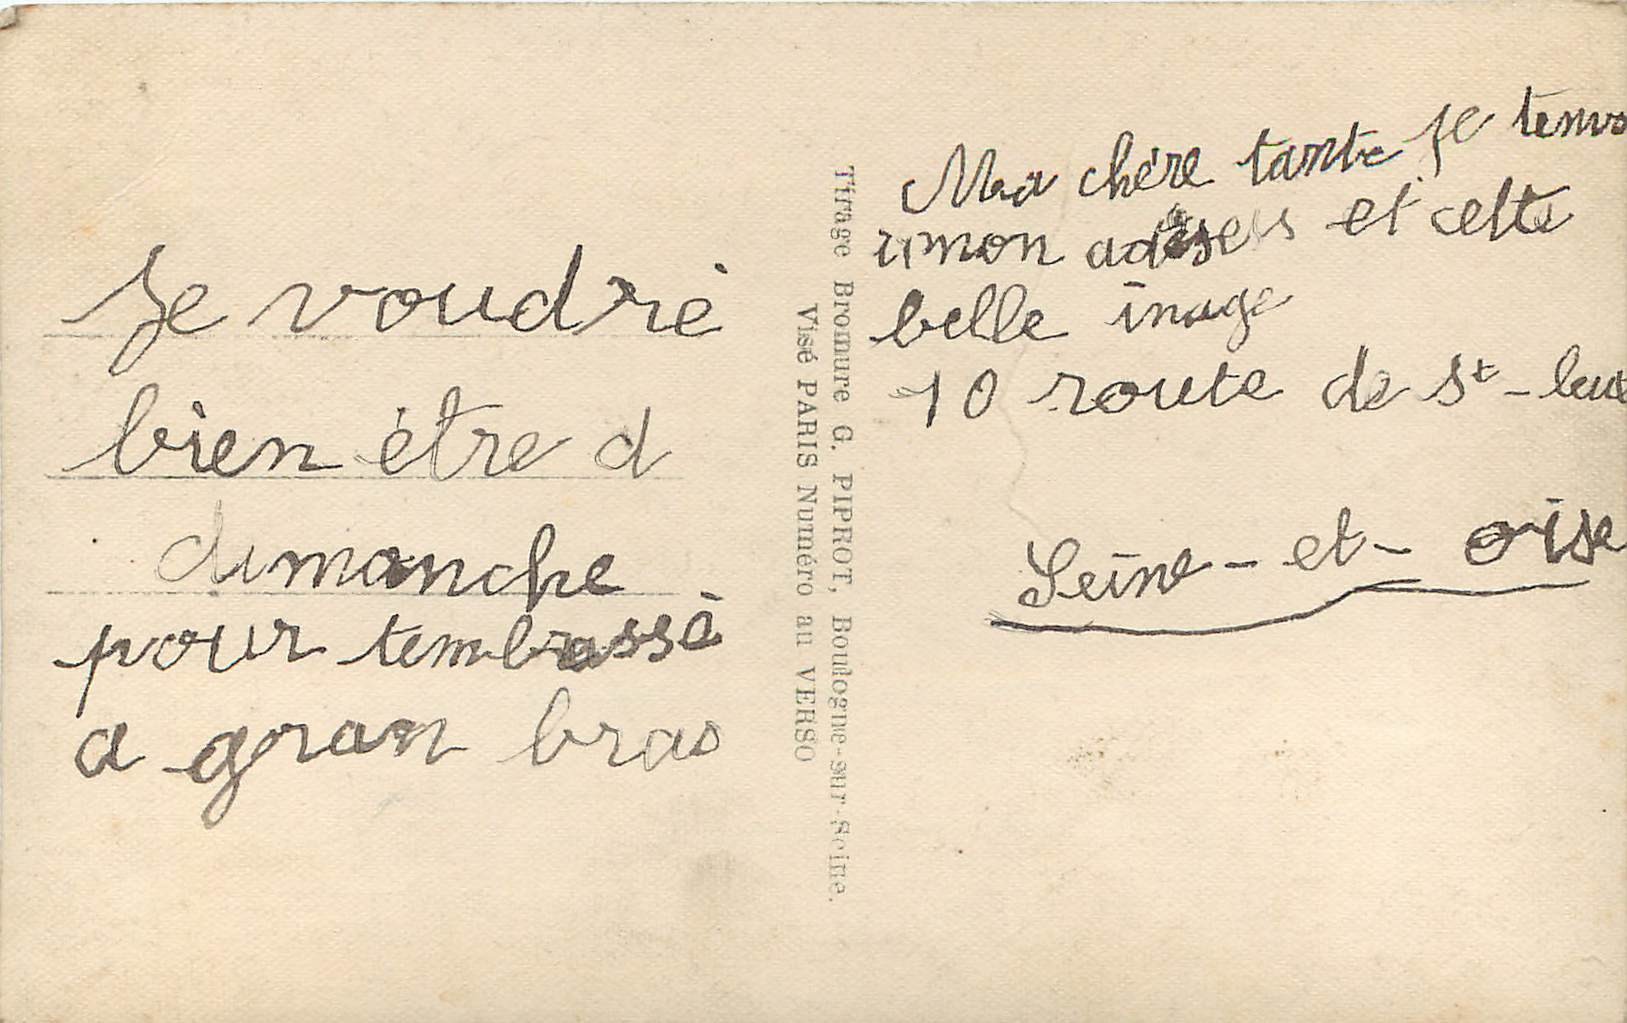 Ma chère tante je
mon et cette
belle inage
10 route de St - leu
Seine - et - oise
Je voudrè
bien être d
dimanche
pour tembrassè
a gran bras
Tirage Bromure G. PIPROT, Boulogne-sur-Seine.
Visé PARIS Numéro au VERSO